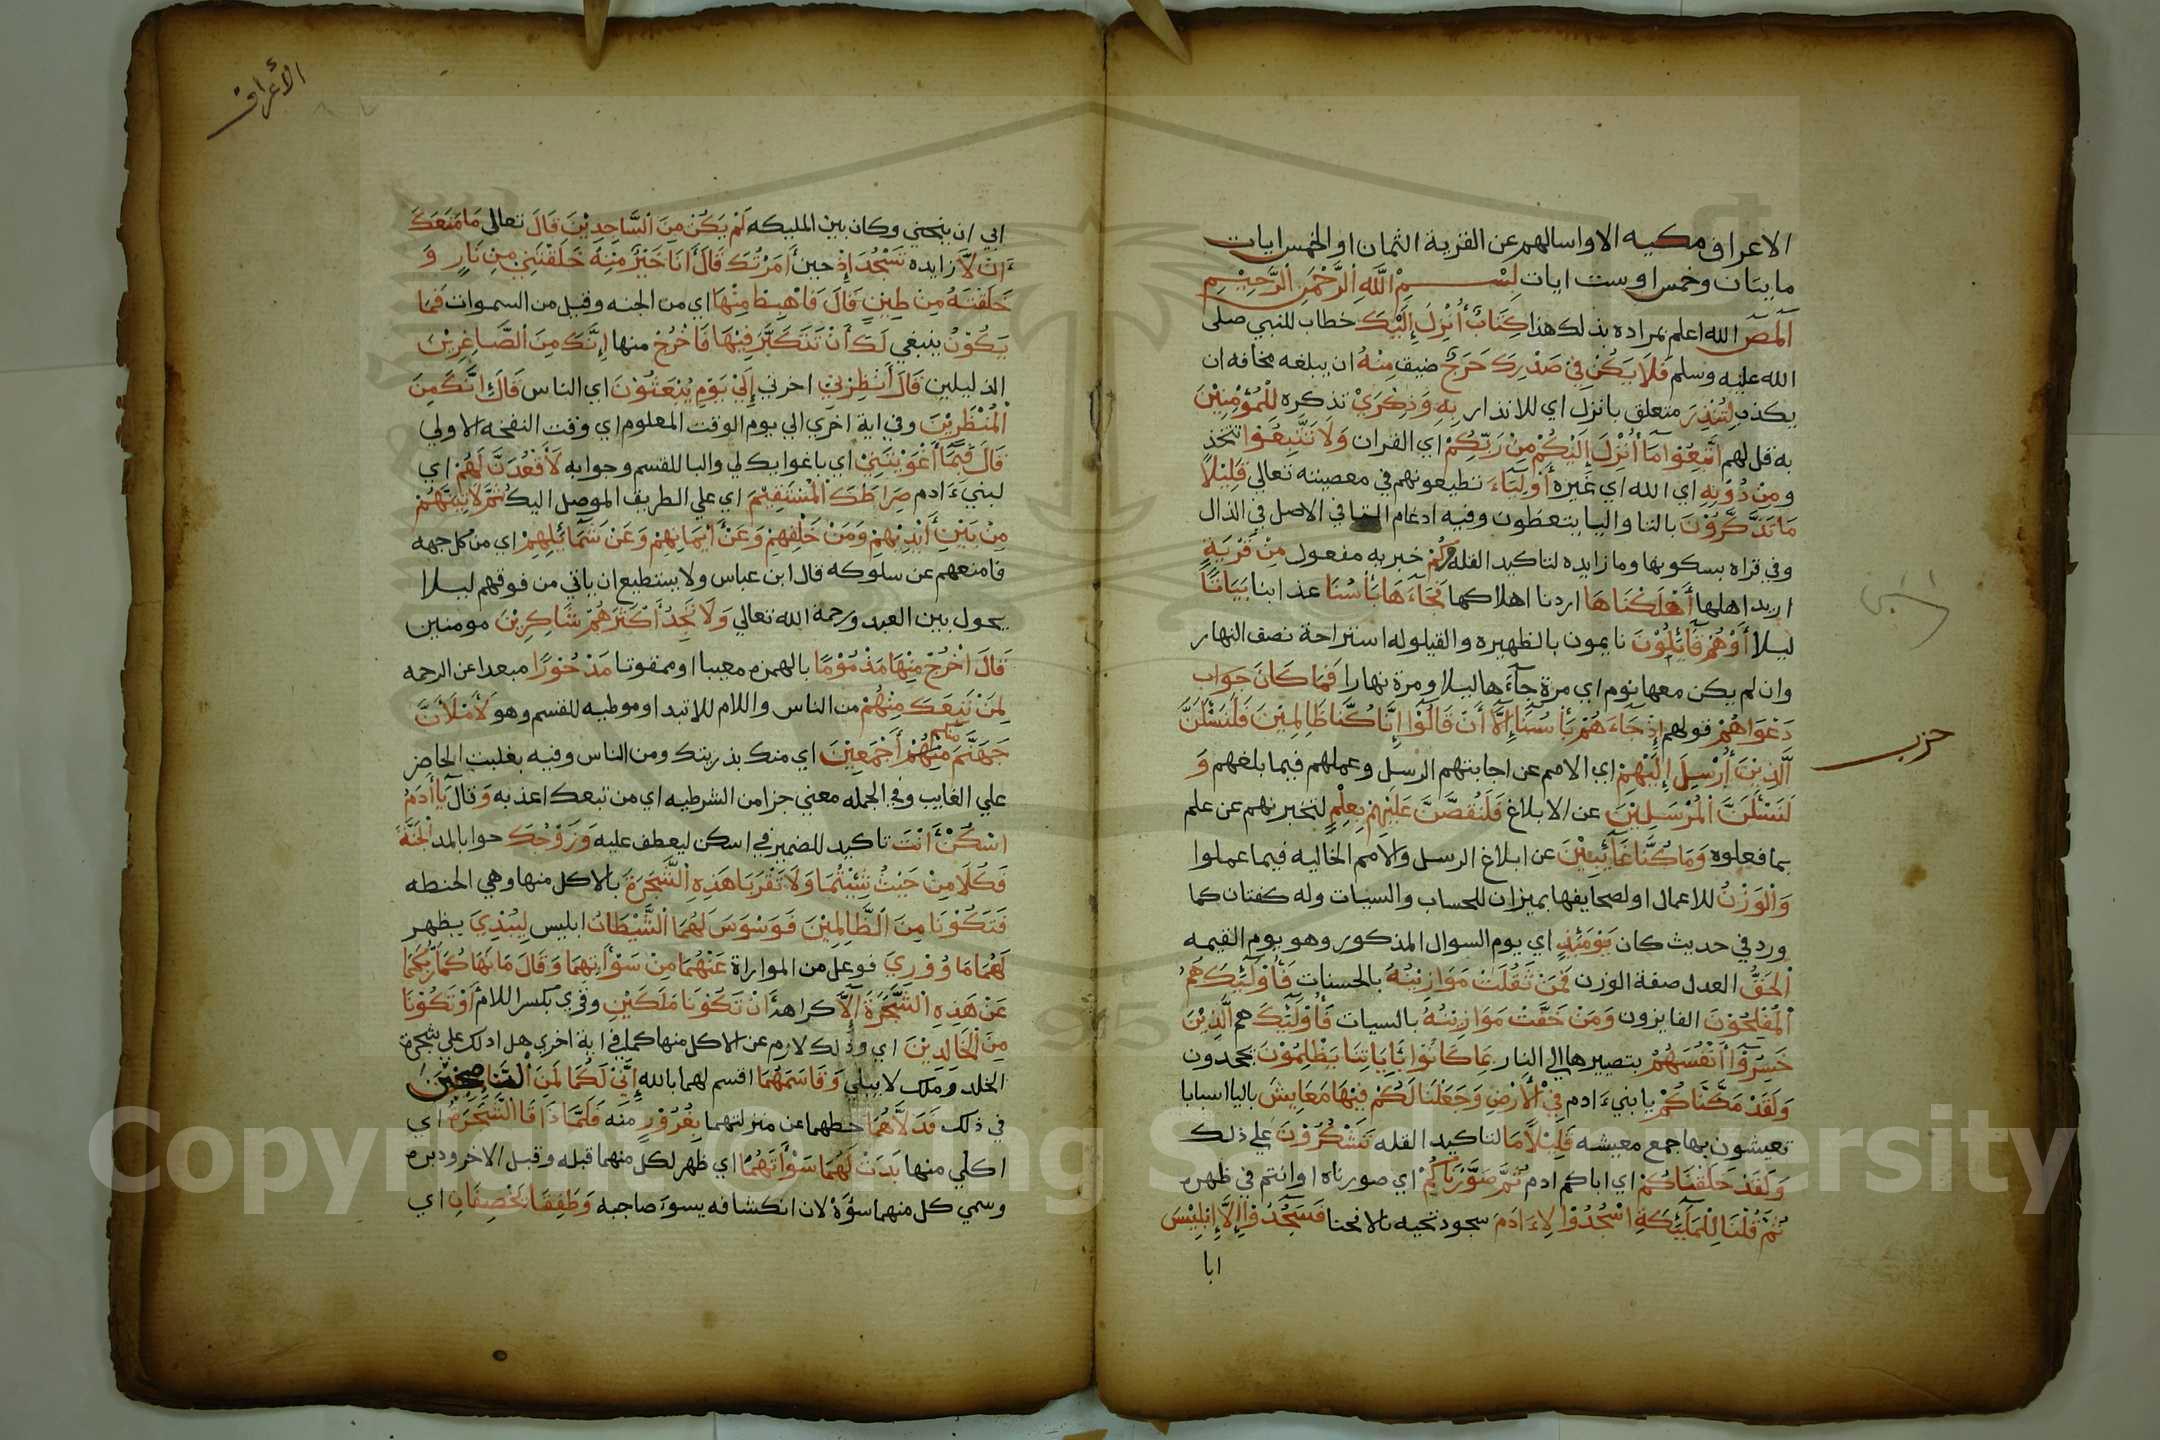 الاعراف مكيه الا واسالهم عن القرية الثمان او الخمس ايات
مايتان وخمس او ست ايات بِسْمِ اللَّهِ الرَّحْمَنِ الرَّحِيْمِ
الٓمٓصٓ الله اعلم بمراده بذلك هذا كِتَابٌ أُنْزِلَ إِلَيْكَ خطاب للنبي صلى
الله عليه وسلم فَلَا يَكُنْ فِيْ صَدْرِكَ حَرَجٌ ضيق مِنْهُ ان يبلغه مخافه ان
يكذب لِتُنْذِرَ متعلق بانزل اي للانذار بِهِ وَذِكْرَيْ تذكره لِلْمُؤْمِنِيْنَ
به قل لهم اتَّبِعُوْا مَآ أُنْزِلَ إِلَيْكُمْ مِنْ رَبِّكُمْ اي القران وَلَا تَتَّبِعُوْا تتخذ
و مِنْ دُوْنِهِ اي الله اي غيره أَوْلِيَآءَ تطيعونهم في معصيته تعالي قَلِيْلاً
مَا تَذَكَّرُوْنَ بالتا واليا يتعظون وفيه ادغام التا في الاصل في الذال
وفي قراه بسكونها وما زايده لتاكيد القله وَكَمْ خبريه مفعول مِنْ قَرْيَةٍ
اريد اهلها أَهْلَكْنَاهَا اردنا اهلاكها فَجَآءَهَا بَأْسُنَا عذابنا بَيَاتًا
ليلا أَوْ هُمْ قَآئِلُوْنَ نايمون بالظهيره والقيلوله استراحة نصف النهار
وان لم يكن معها نوم اي مرة جآءها ليلا ومرة نهارا فَمَا كَانَ جواب
دَعْوَاهُمْ قولهم إِذْ جَاءَهُمْ بَأْسُنَا إِلَّا أَنْ قَالُوْا إِنَّا كُنَّا ظَالِمِيْنَ فَلَنَسْئَلَنَّ
حزب
الَّذِيْنَ أُرْسِلَ إِلَيْهِمْ اي الامم عن اجابتهم الرسل وعملهم فيما بلغهم وَ
لَنَسْئَلَنَّ الْمُرْسَلِيْنَ عن الابلاغ فَلَنَقُصَّنَّ عَلَيْهِمْ بِعِلْمٍ لنخبرنهم عن علم
بما فعلوه وَمَا كُنَّا غَآئِبِيْنَ عن ابلاغ الرسل والامم الخاليه فيما عملوا
وَالْوَزْنُ للاعمال او لصحايفها بميزان للحساب والسيات وله كفتان كما
ورد في حديث كان يَوْمَئِذٍ اي يوم السوال المذكور وهو يوم القيمه
الْحَقُّ العدل صفة الوزن فَمَنْ ثَقُلَتْ مَوَازِيْنُهُ بالحسنات فَأُوْلَئِكَ هُمُ
الْمُفْلِحُوْنَ الفايزون وَمَنْ خَفَّتْ مَوَازِيْنُهُ بالسيات فَأُوْلَئِكَ هم الَّذِيْنَ
خَسِرُوْآ أَنْفُسَهُمْ بتصيرها الي النار بِمَا كَانُوْا بِآيَاتِنَا يَظْلِمُوْنَ يجحدون
وَلَقَدْ مَكَّنَّاكُمْ يا بني ءادم فِيْ الْأَرْضِ وَجَعَلْنَا لَكُمْ فِيْهَا مَعَايِشَ باليا اسبابا
تعيشون بها جمع معيشه قَلِيْلاً مَا لتاكيد القله تَشْكُرُوْنَ علي ذلك
وَلَقَدْ خَلَقْنَاكُمْ اي اباكم ادم ثُمَّ صَوَّرْنَاكُمْ اي صورناه او انتم في ظهره
ثُمَّ قُلْنَا لِلْمَلَآئِكَةِ اسْجُدُوْا لِاءَدَمَ سجود تحيه بالانحنا فَسَجَدُوْآ إِلَّآ إِبْلِيْسَ
ابا
الأعراف
ابي ان ينحني وكان بين المليكه لَمْ يَكُنْ مِنَ السَّاجِدِيْنَ قَالَ تعالي مَا مَنَعَكَ
ءَانْ لَّا زايده تَسْجُدَ إِذْ حين أَمَرْتُكَ قَالَ أَنَا خَيْرٌ مِنْهُ خَلَقْتَنِيْ مِنْ نَارٍ وَ
خَلَقْتَهُ مِنْ طِيْنٍ قَالَ فَاهْبِطْ مِنْهَا اي من الجنه وقيل من السموات فَمَا
يَكُوْنُ ينبغي لَكَ أَنْ تَتَكَبَّرَ فِيْهَا فَاخْرُجْ منها إِنَّكَ مِنَ الصَّاغِرِيْنَ
الذليلين قَالَ أَنْظِرْنِيْ اخرني إِلَيْ يَوْمِ يُبْعَثُوْنَ اي الناس قَالَ إِنَّكَ مِنَ
الْمُنْظَرِيْنَ وفي اية اخري الي يوم الوقت المعلوم اي وقت النفخه الاولي
قَالَ فَبِمَآ أَغْوَيْتَنِيْ اي باغوايك لي والبا للقسم وجوابه لَأَقْعُدَنَّ لَهُمْ اي
لبني ءادم صِرَاطَكَ الْمُسْتَقِيْمَ اي علي الطريق الموصل اليك ثُمَّ لَأَتِيَنَّهُمْ
مِنْ بَيْنِ أَيْدِيْهِمْ وَمِنْ خَلْفِهِمْ وَعَنْ أَيْمَانِهِمْ وَعَنْ شَمَآئِلِهِمْ اي من كل جهه
فامنعهم عن سلوكه قال ابن عباس ولا يستطيع ان ياتي من فوقهم ليلا
يحول بين العبد ورحمة الله تعالي وَلَا تَجِدُ أَكْثَرَهُمْ شَاكِرِيْنَ مومنين
قَالَ اخْرُجْ مِنْهَا مَذْءُوْمًا بالهمزه معيبا او ممقوتا مَدْحُوْرًا مبعدا عن الرحمه
لَمَنْ تَبِعَكَ مِنْهُمْ من الناس واللام للابتدا او موطيه للقسم وهو لَأَمْلَأَنَّ
جَهَنَّمَ مِنْكُمْ أَجْمَعِيْنَ اي منك بذريتك ومن الناس وفيه يغلبت الحاضر
علي الغايب وفي الجمله معني جزا من الشرطيه اي من تبعك اعذبه وَقال يَآ أَدَمُ
اسْكُنْ أَنْتَ تاكيد للضمير في اسكن ليعطف عليه وَزَوْجُكَ حوا بالمد الْجَنَّةَ
فَكُلَا مِنْ حَيْثُ شِئْتُمَا وَلَا تَقْرَبَا هَذِهِ الشَّجَرَةَ بالاكل منها وهي الحنطه
فَتَكُوْنَا مِنَ الظَّالِمِيْنَ فَوَسْوَسَ لَهُمَا الشَّيْطَانُ ابليس لِيُبْدِيَ يظهر
لَهُمَا مَا وُوْرِيَ فوعل من المواراة عَنْهُمَا مِنْ سَوْأَتِهِمَا وَقَالَ مَا نَهَاكُمَا رَبُّكُمَا
عَنْ هَذِهِ الشَّجَرَةِ إِلَّآ كراهة أَنْ تَكُوْنَا مَلَكَيْنِ وقري بكسر اللام أَوْ تَكُوْنَا
مِنَ الْخَالِدِيْنَ اي وذلك لازم عن الاكل منها كما في اية اخري هل ادلك علي شجرة
الخلد وملك لا يبلي وَقَاسَمَهُمَا اقسم لهما بالله إِنِّيْ لَكُمَا لَمِنَ النَّاصِحِيْنَ
في ذلك فَدَلَّاهُمَا حطهما عن منزلتهما بِغُرُوْرٍ منه فَلَمَّا ذَاقَا الشَّجَرَةَ اي
اكلي منها بَدَتْ لَهُمَا سَوْأَتُهُمَا اي ظهر لكل منهما قبله وقبل الاخر ودبره
وسمي كل منهما سوْءَة لان انكشافه يسوء صاحبه وَطَفِقَا يَخْصِفَانِ اي
Copyright © King Saud University